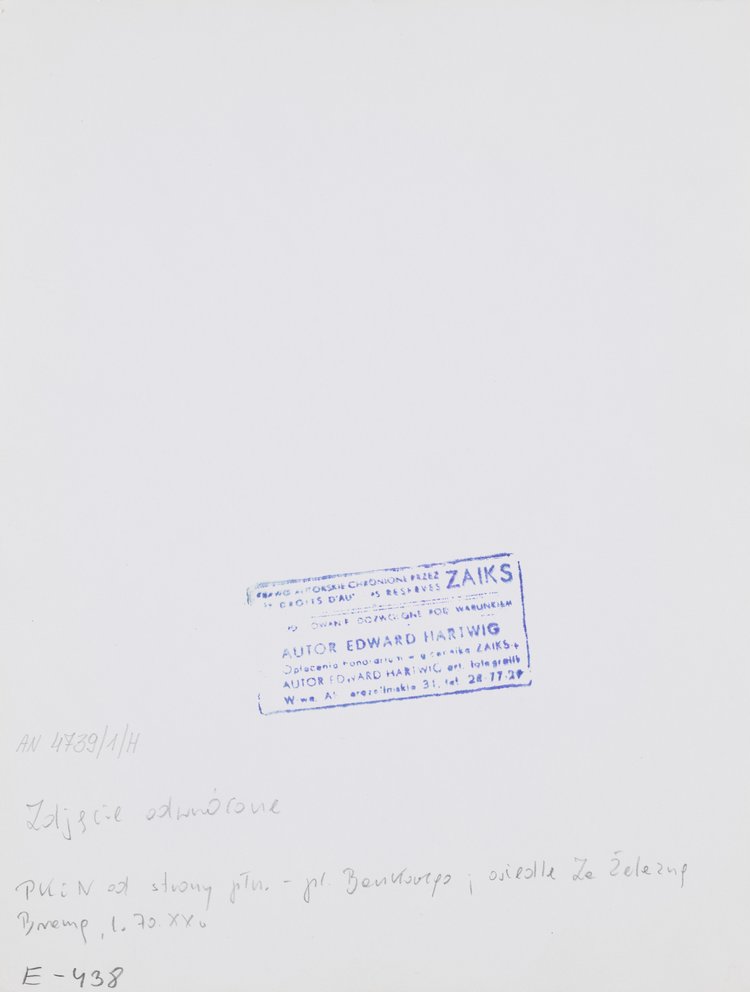 PRAWO AUTORSKIE CHRONIONE PRZEZ ZAIKS
DROITS D'AU RESERVES
OWANIE DOZWOLONE POD WARUNKIEM
AUTOR EDWARD HARTWIG
Opłacenia honorarium ZAIKS
AUTOR EDWARD HARTWIG art. fotografik
W-wa, Al. erozolimskie 31, tel. 28-77-29
AN 4739/1/H
Zdjęcie odwrócone
PKiN od strony płn. - pl. Bankowego i osiedle Za Żelazną
Bramą, l. 70. XX w
E - 438